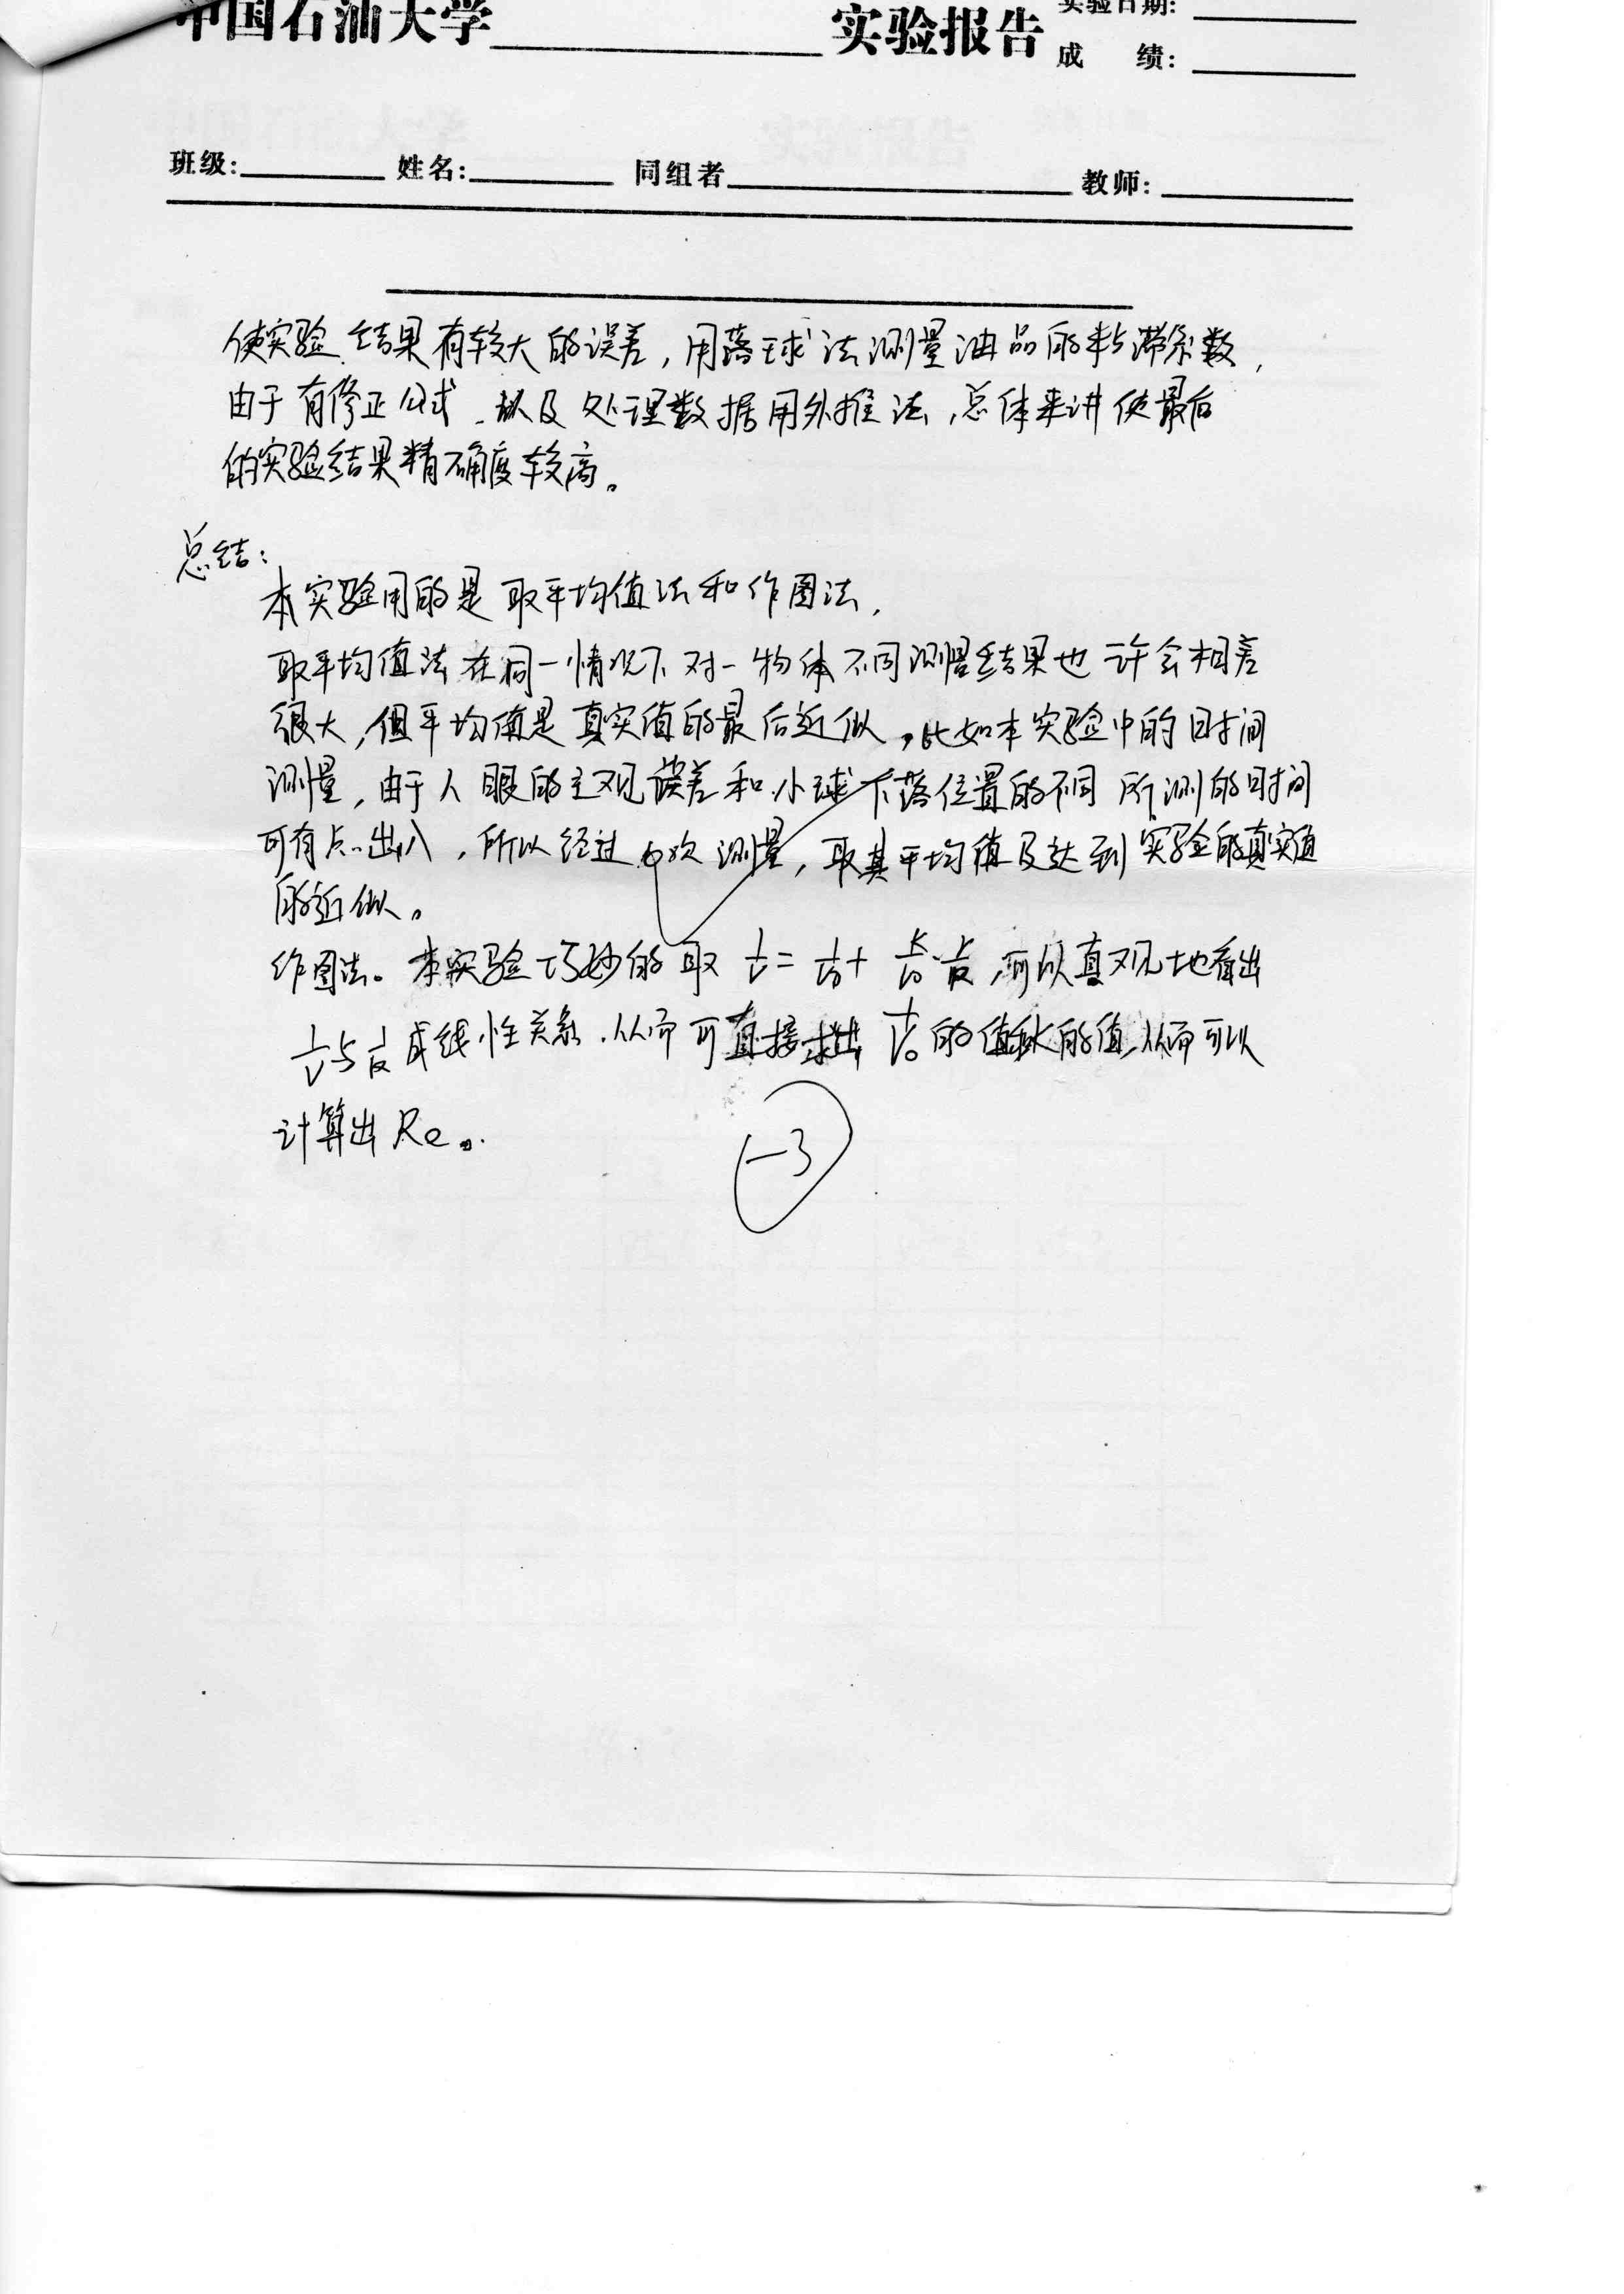 中国石油大学 实验报告 实验日期:
成 绩:
班级: 姓名: 同组者 教师:
使实验结果有较大的误差,用落球法测量油品的粘滞系数,
由于有修正公式、以及处理数据用外推法,总体来讲使最后
的实验结果精确度较高。
总结:
本实验用的是取平均值法和作图法,
取平均值法在同一情况下对一物体不同测量结果也许会相差
很大,但平均值是真实值的最后近似,比如本实验中的时间
测量,由于人眼的主观误差和小球下落位置的不同所测的时间
可有点出入,所以经过6次测量,取其平均值及达到实验的真实值
的近似。
作图法。本实验巧妙的取 1/v = 1/v₀ + k/v₀ · 1/R ,可以直观地看出
1/v与1/R成线性关系.从而可直接求出 1/v₀的值和k的值,从而可以
计算出Re。
-3